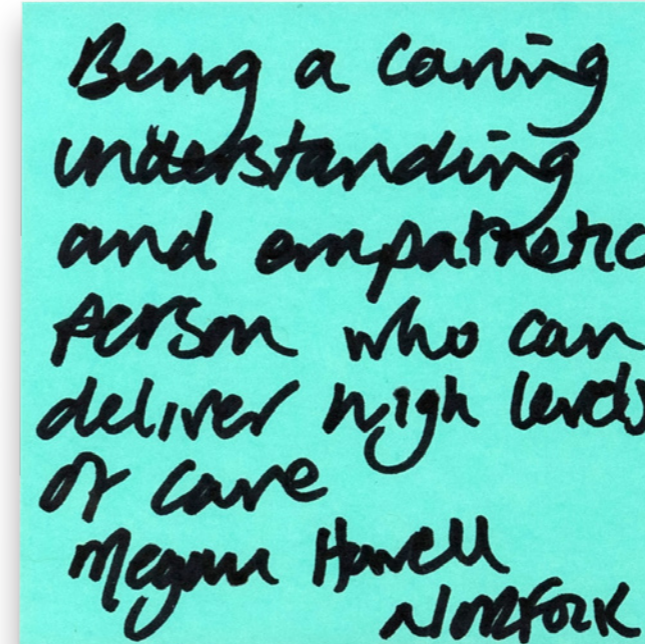 Being a caring
understanding
and empathetic
person who can
deliver high levels
of care
Megan Howell
NORFOLK